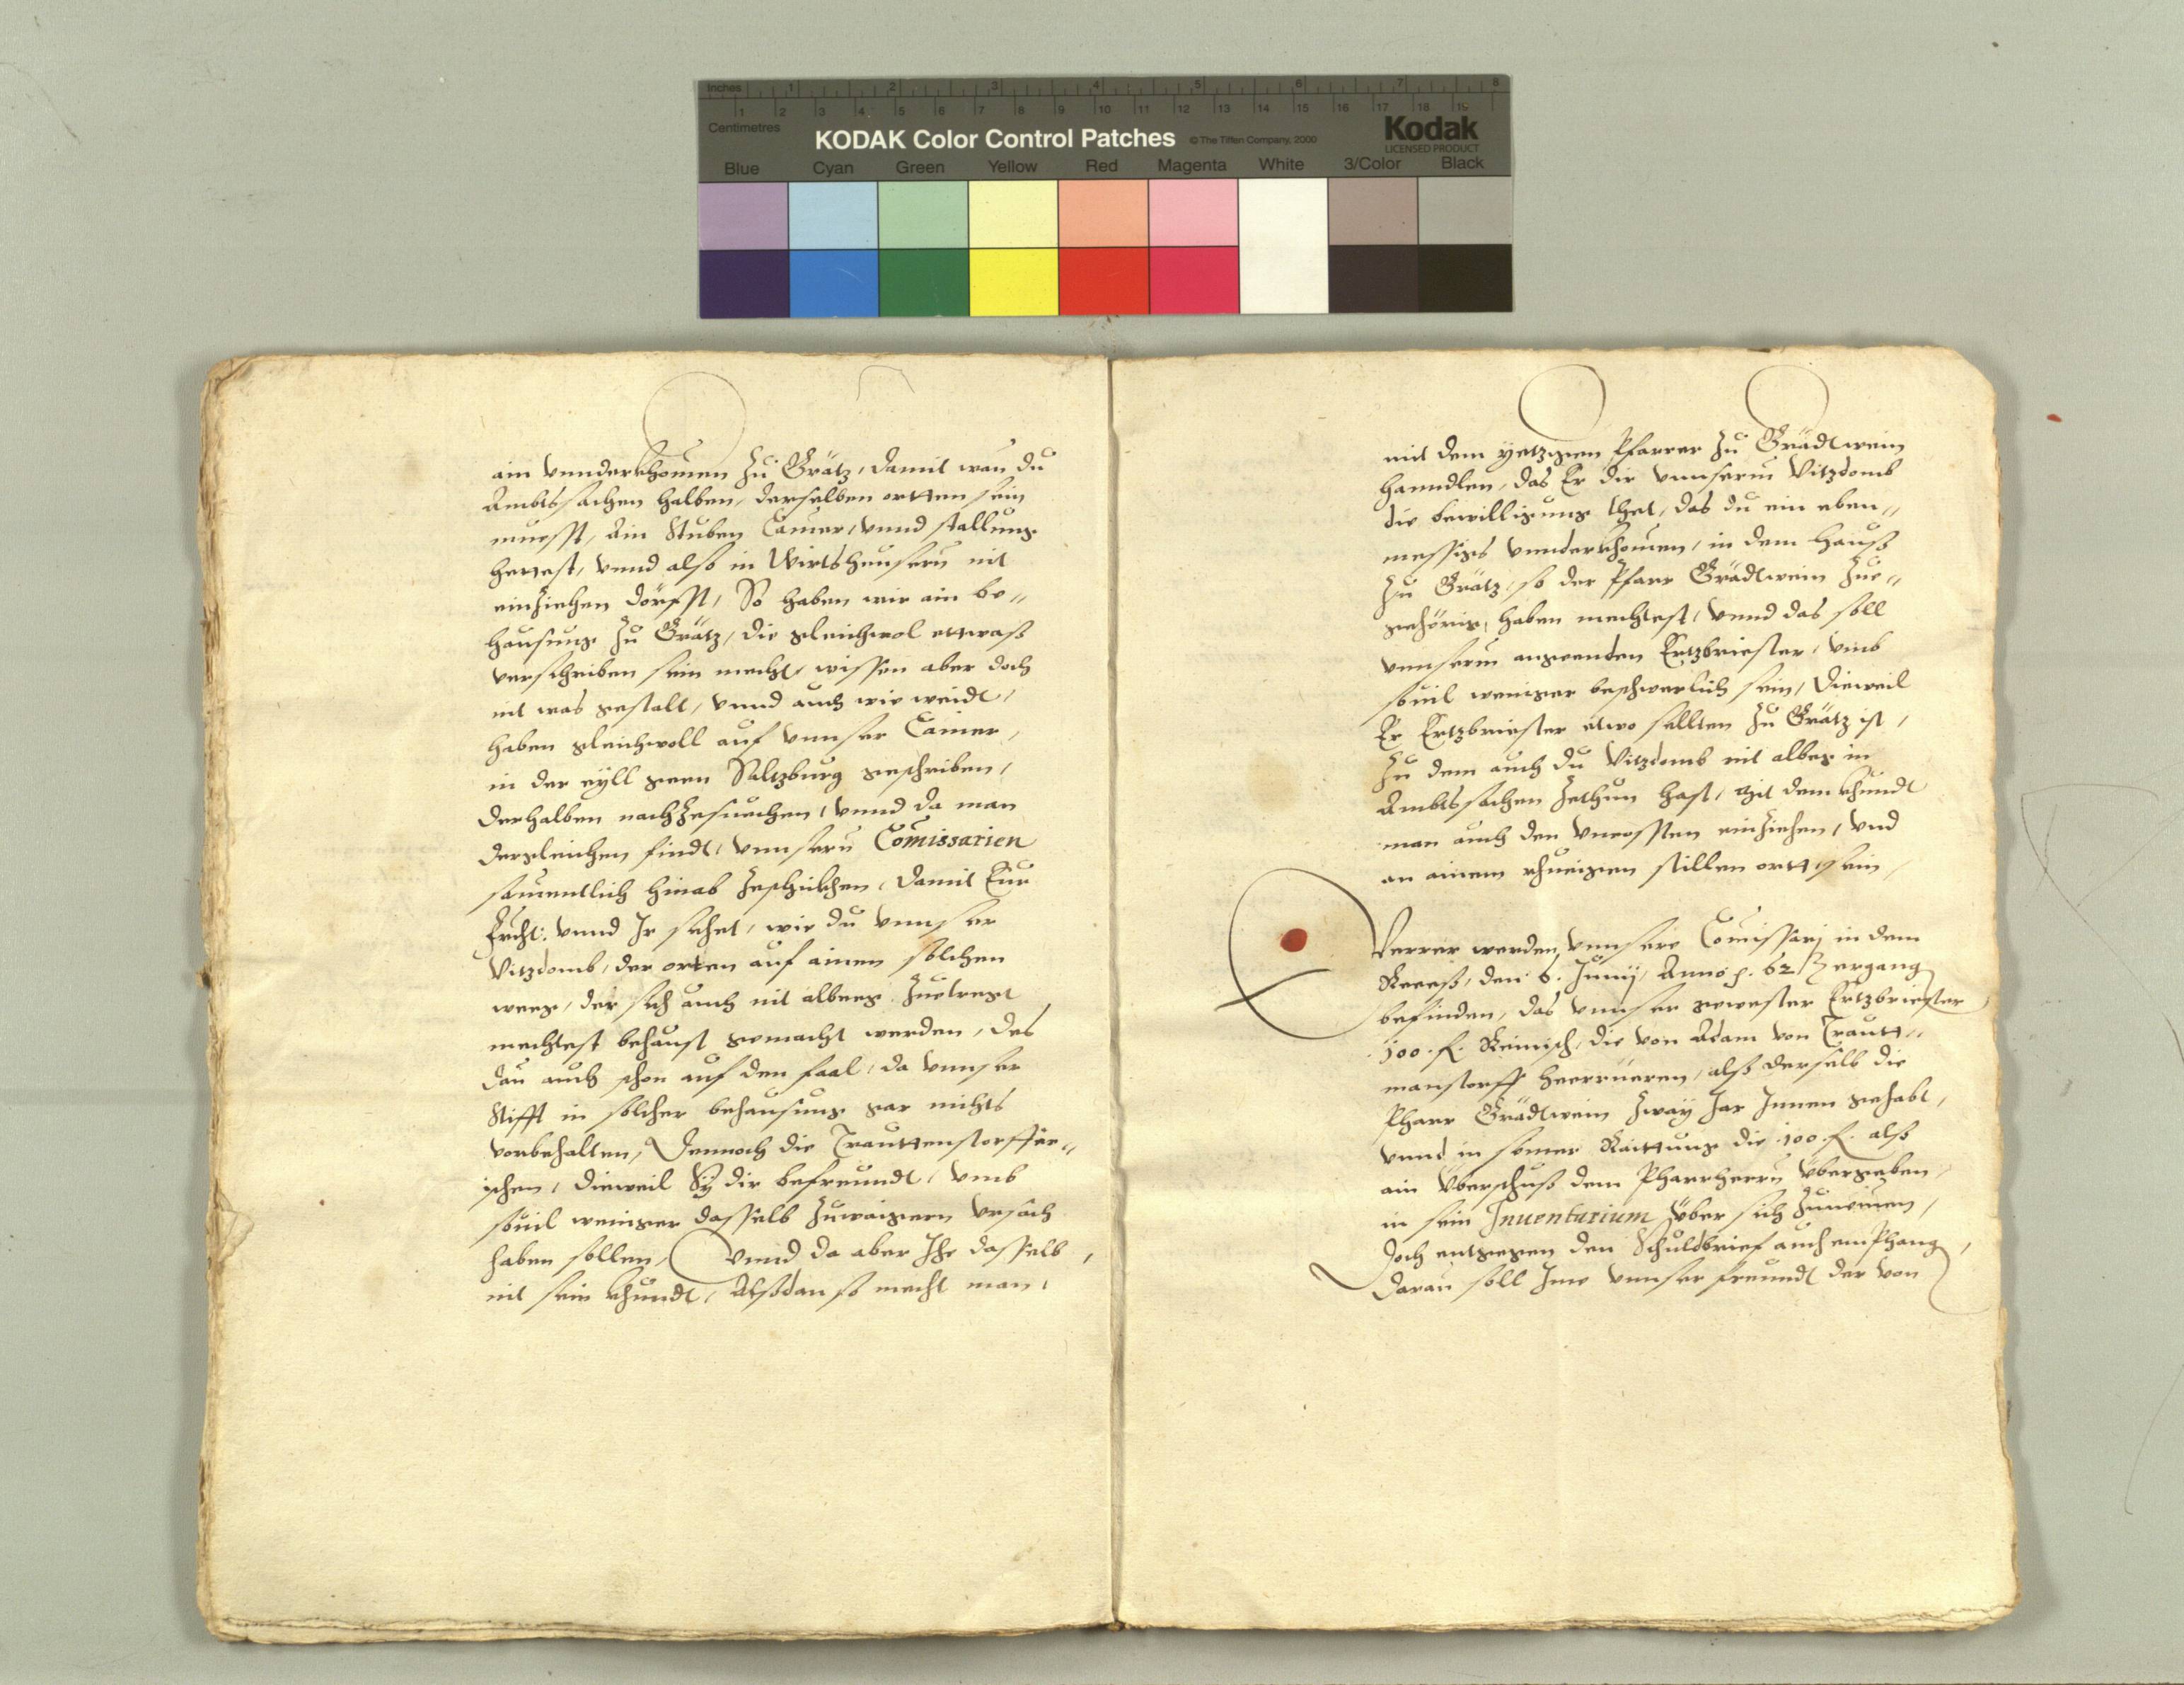 Inches 1 2 3 4 5 6 7 8
1 2 3 4 5 6 7 8 9 10 11 12 13 14 15 16 17 18 19
Centimetres
KODAK Color Control Patches © The Tiffen Company, 2000 Kodak
LICENSED PRODUCT
Blue Cyan Green Yellow Red Magenta White 3/Color Black
ain vnnderkhomen zu Grätz, damit wan du
Ambtssachen halben, derselben ortten sein
muesst, Ain Stuben Camer, vnnd stallung
hettest, vnnd also in Wirtsheusern nit
einziehen dörffst, So haben wir ain be„
hausung zu Grätz, die gleichwol ettwaß
verschriben sein mecht, wissen aber doch
nit was gestalt, vnnd auch wie weidt,
haben gleichwoll auf vnnser Camer,
in der eyll geen Saltzburg geschriben,
derhalben nachzesuechen, vnnd da man
dergleichen findt, vnnsern Comissarien
sammentlich hinab zeschickhen, damit Eur
vnnd Ir sehet, wie du vnnser
Vitzdomb, der orten auf ainen solchen
weeg, der sich auch nit albeeg zuetregt
mechtest behaust gemacht werden, des
dan auch schon auf den faal, da vnnser
Stifft in solcher behausung gar nichts
vorbehalten, Dennoch die Trauttenstorffer„
ischen, dieweil Sy dir befreundt, vmb
souil weniger dasselb zuwaigern vrsach
haben sollen, Vnnd da aber Ihe dasselb,
nit sein khundt, Alßdan so mecht man,
mit dem yetzigen Pfarrer zu Grädtwein
hanndlen, das Er dir vnnserm Vitzdomb
die bewilligung thet, das du ein eben„
messigs vnnderkhomen, in dem Hauß
zu Grätz, so der Pfarr Grädtwein zue„
gehörig, haben mechtest, vnnd das soll
vnnserm angeenden Ertzbriester, vmb
souil weniger beschwerlich sein, Dieweil
Er Ertzbriester etwo sellten zu Grätz ist,
zu dem auch du Vitzdomb nit albeg in
Ambtssachen zethun hast, mit dem khundt
man auch den vncossten einziehen, vnd
an ainem rhueigen stillen ortt sein,
Verrer werden vnnsere Comissarj in dem
Recess, den 6. Junij, Anno p. 62 ergang
befinden, das vnnser gewester Ertzbriester
100. fl. Reinisch, die von Adam von Trautt„
manstorff heerrüeren, alß derselb die
Pharr Grädtwein zway Jar Innen gehabt,
vnnd in seiner Raittung die 100. fl. alß
ain Vberschuß dem Pharrherrn Vbergeben,
in sein Inuentarium vber sich zunemen,
doch entgegen den Schuldbrief auch emPhang,
daran soll Ime vnnser freundt der von